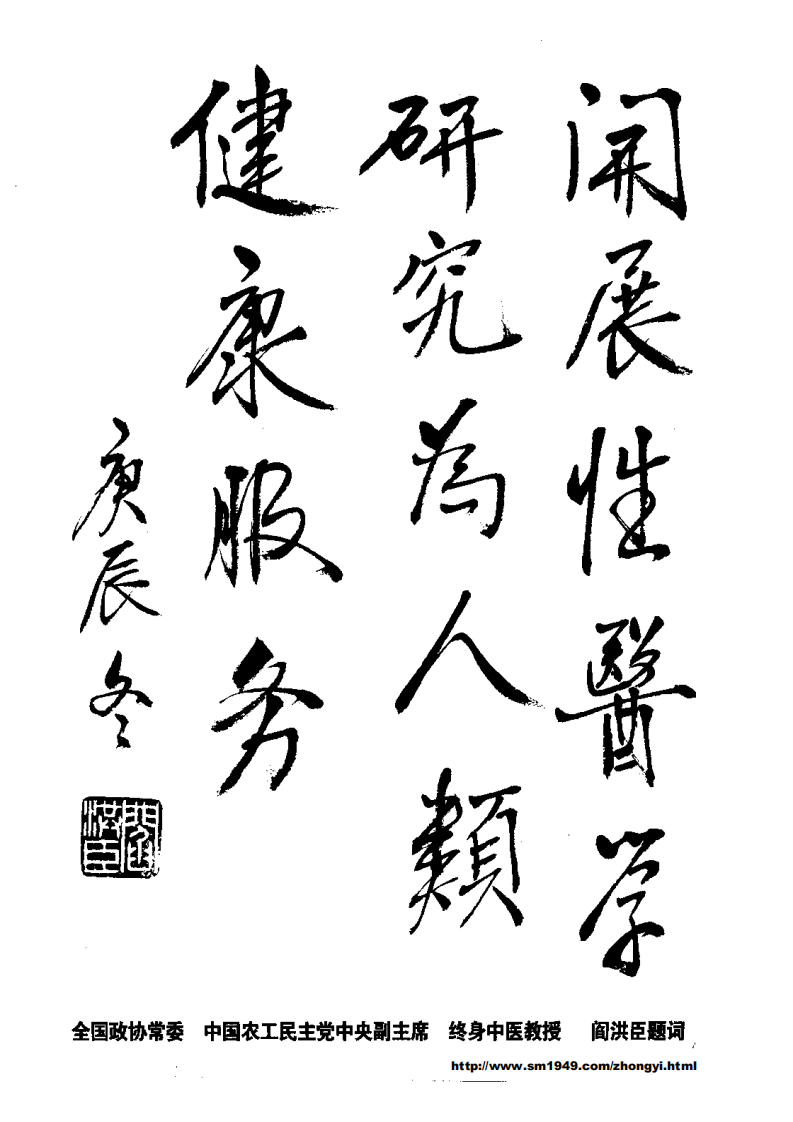 開展性醫学
研究為人類
健康服务
庚辰冬
閻洪臣
全国政协常委 中国农工民主党中央副主席 终身中医教授 阎洪臣题词
http://www.sm1949.com/zhongyi.html